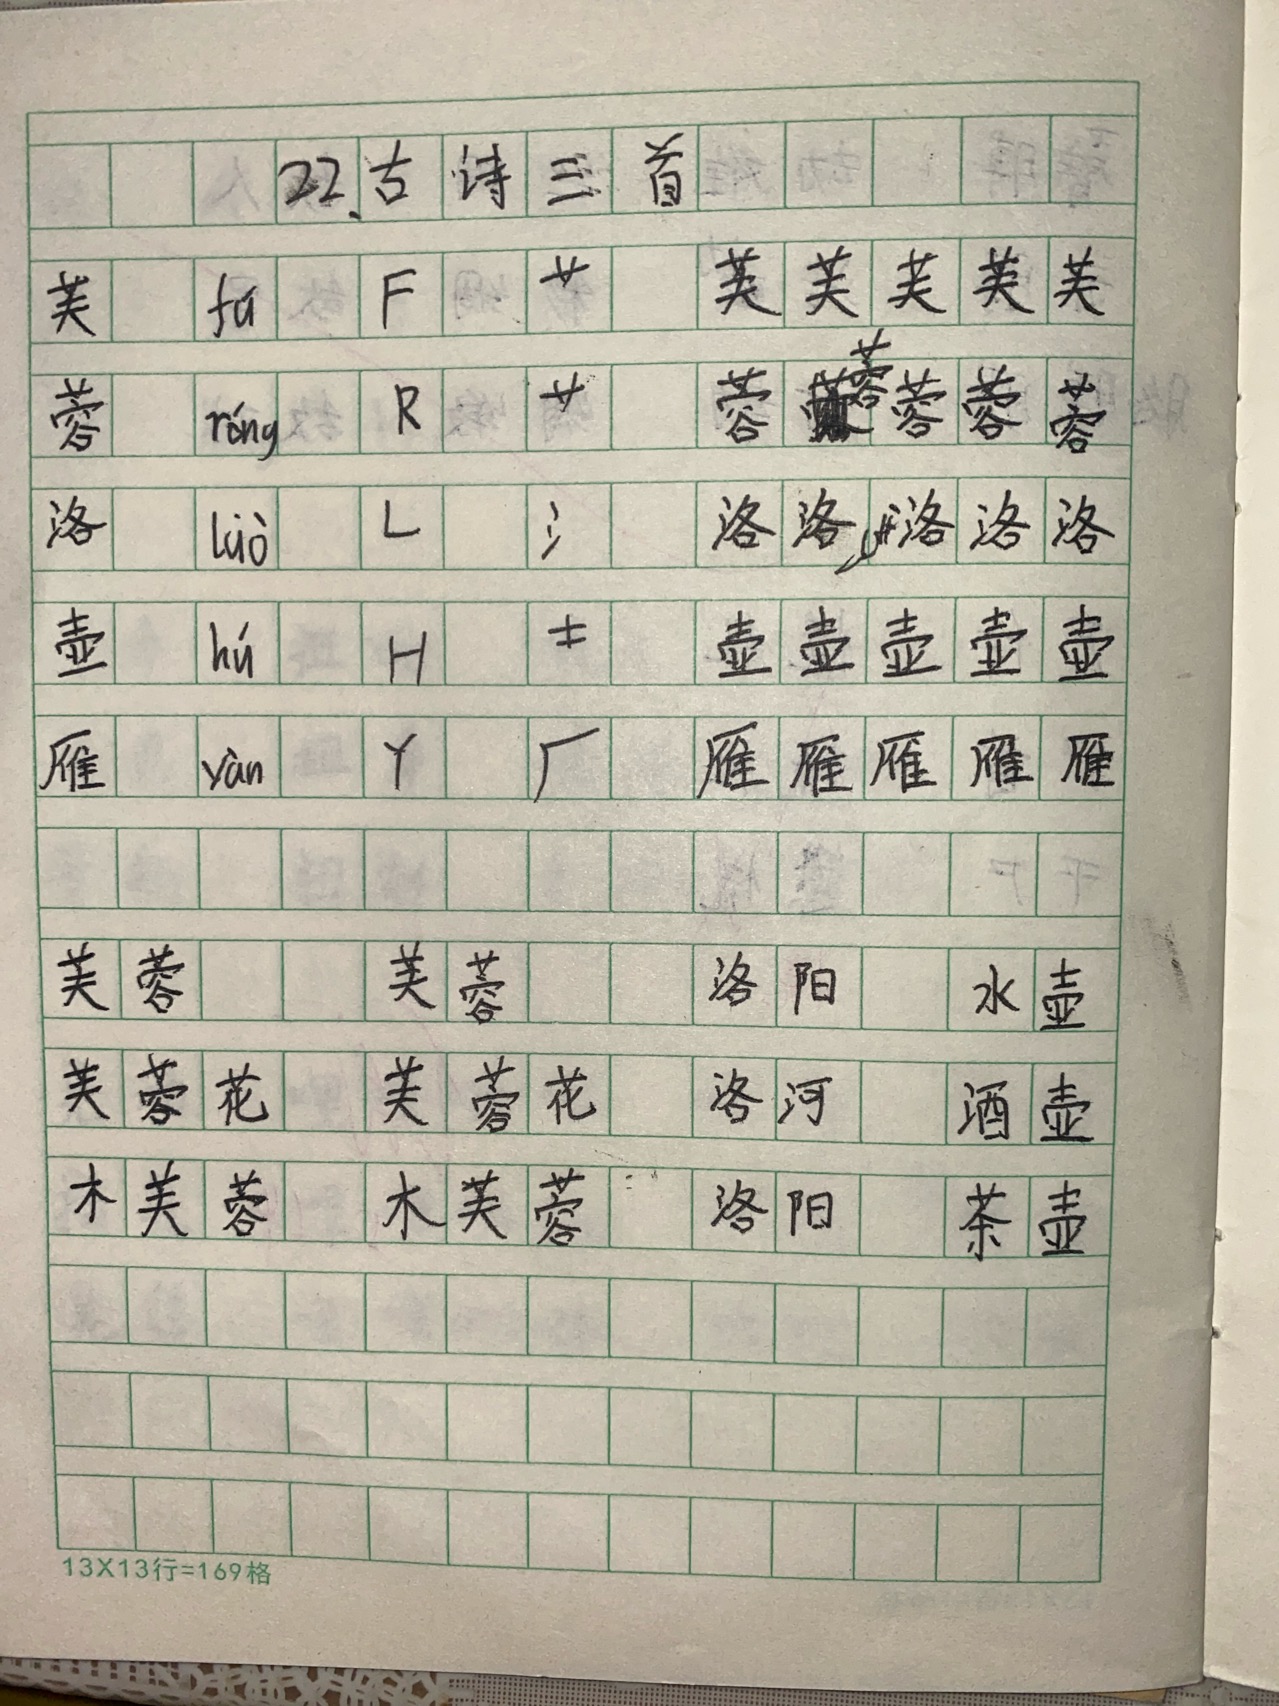 22.古诗三首
芙 fú F 艹 芙芙芙芙芙
蓉 róng R 艹 蓉蓉蓉蓉蓉
洛 luò L 氵 洛洛洛洛洛
壶 hú H 士 壶壶壶壶壶
雁 yàn Y 厂 雁雁雁雁雁
芙蓉 芙蓉 洛阳 水壶
芙蓉花 芙蓉花 洛河 酒壶
木芙蓉 木芙蓉 洛阳 茶壶
13X13行=169格